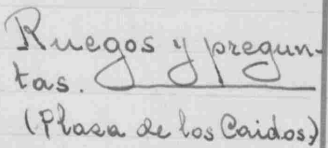 Ruegos y pregun-
tas.
(Plaza de los Caidos)